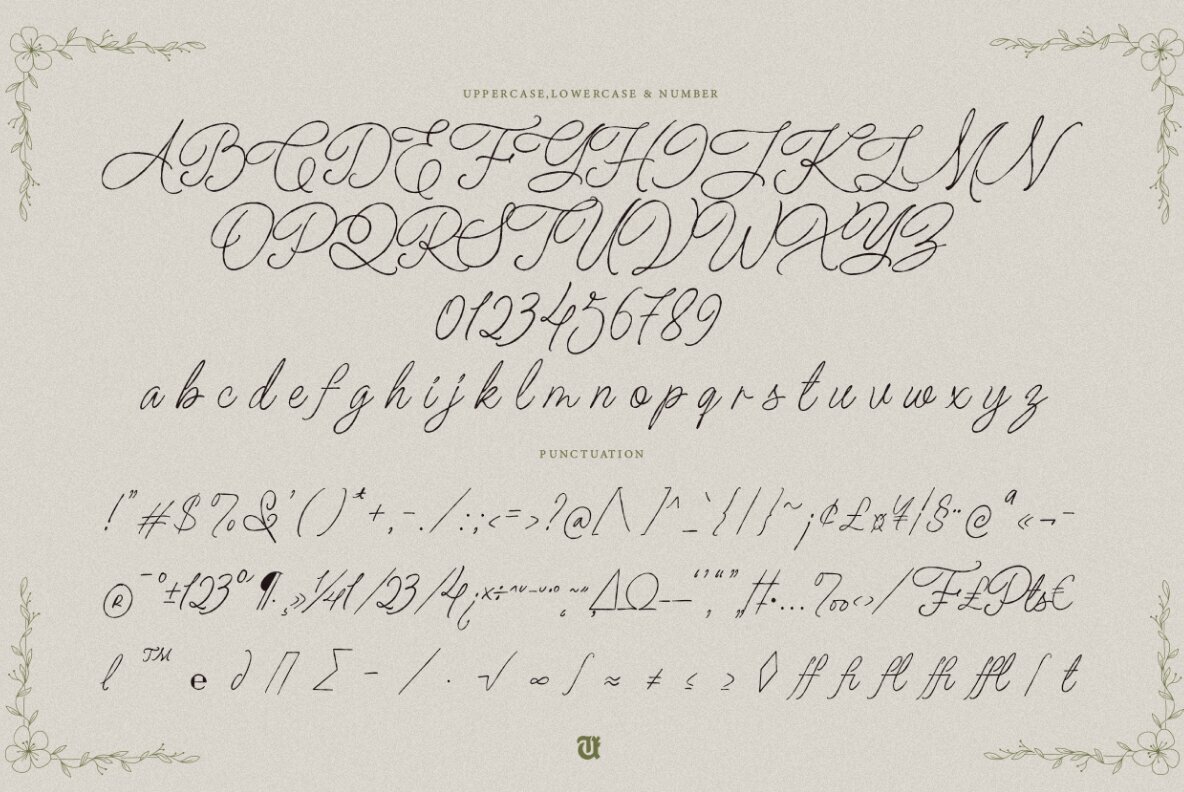 UPPERCASE,LOWERCASE & NUMBER
ABCDEFGHIJKLMN
OPQRSTUVWXYZ
0123456789
a b c d e f g h i j k l m n o p q r s t u v w x y z
PUNCTUATION
!"#$%&'()*+,-./:;<=>?@[\]^_`{|}~¡¢£¤¥¦§¨©ª«¬-
®¯°±123º¶¸»1/41/23/4¿×÷ˆˇ˘˙˚˜˝∆Ω–—‘’‚“”„‡•…‰‹›⁄₣₤₧€
ℓ ™ ℮ ∂ ∏ ∑ − ∕ ∙ √ ∞ ∫ ≈ ≠ ≤ ≥ ◊ ff fi fl ffi ffl ſ t
U